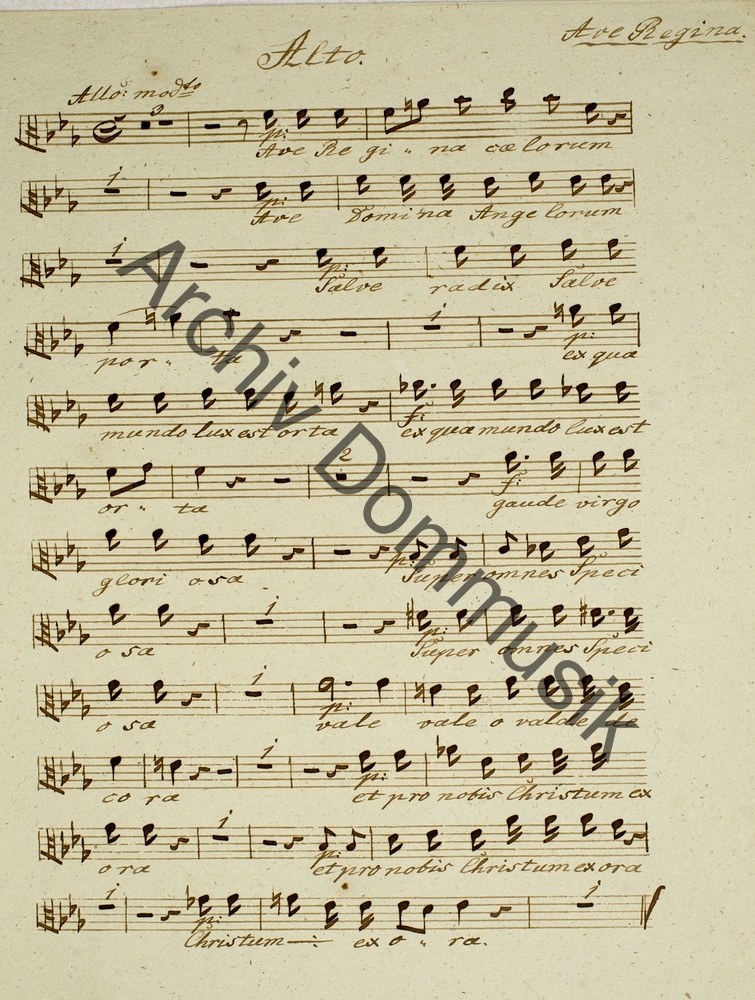 Ave Regina.
Alto.
Allo: modto
3
p: Ave Re gi „ na cœ lorum
1
p: Ave Domina Ange lorum
1
p: Salve radix Salve
1
por „ ta p: ex qua
mundo lux est orta f: ex qua mundo lux est
2
or „ ta f: gaude virgo
glori osa p: Super omnes Speci
1
o sa p: Super omnes Speci
1
o sa p: vale vale o valde de
1
co ra p: et pro nobis Christum ex
1
o ra p: et pro nobis Christum ex ora
1 1
p: Christum —: ex o „ ra.
Archiv Dommusik